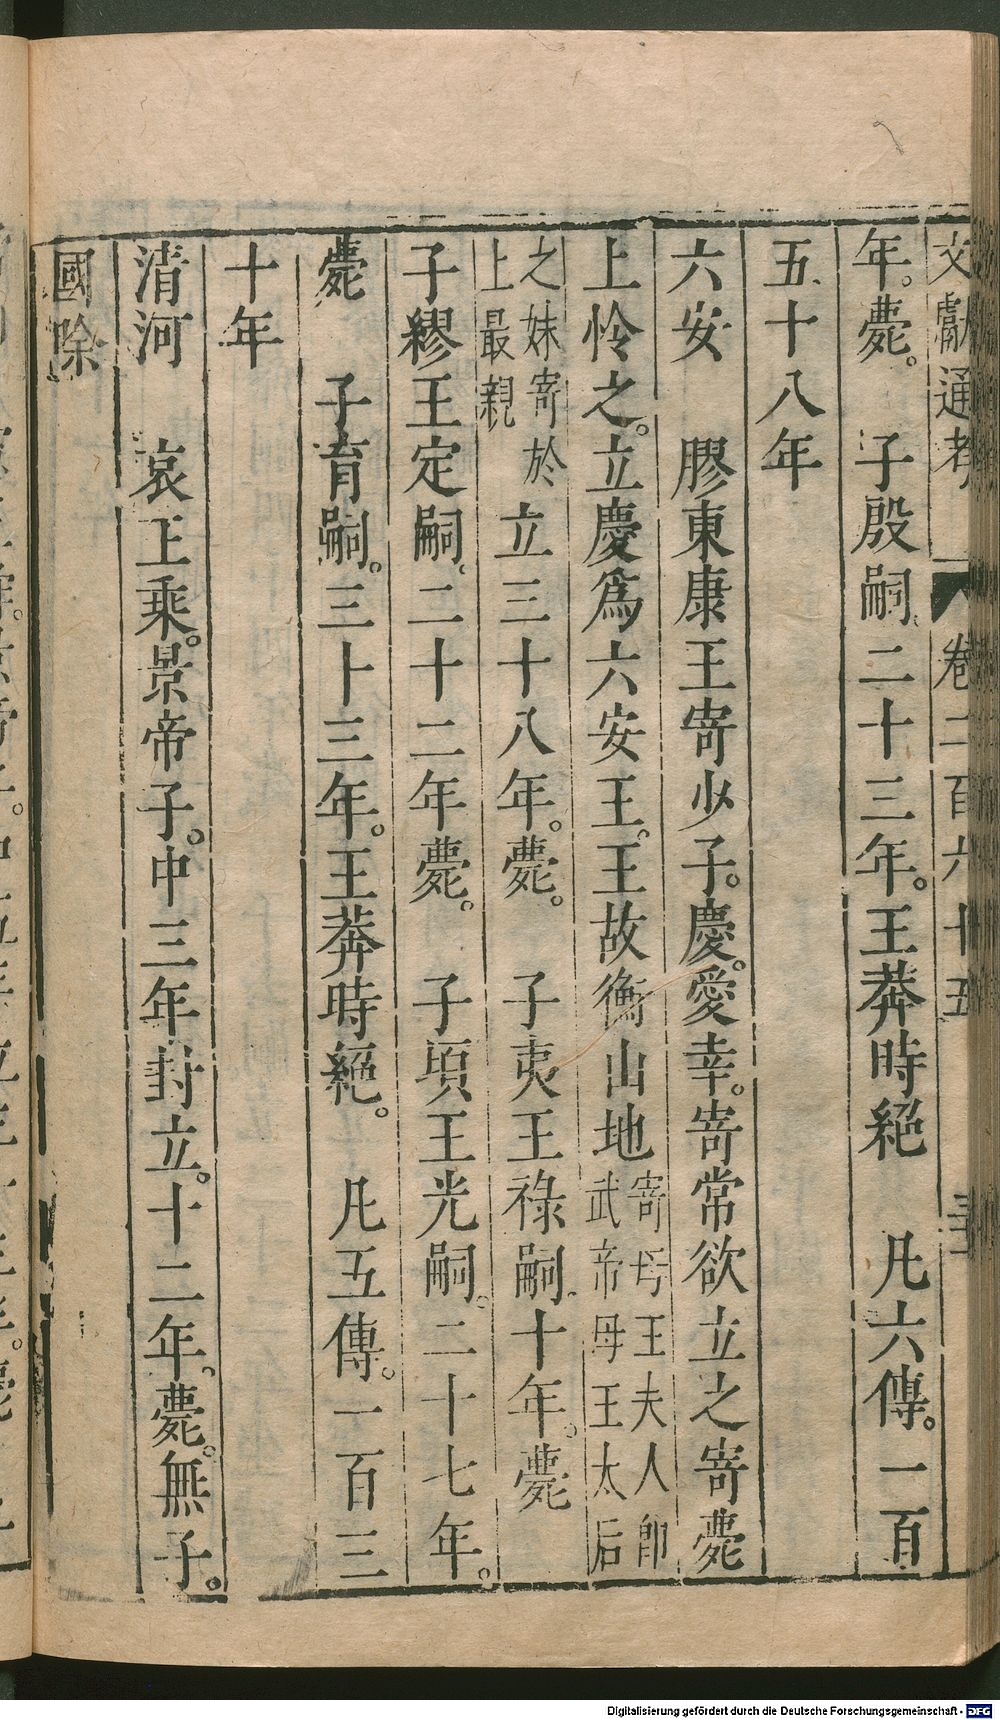 文獻通考 卷二百六十五
年。薨。 子殷嗣。二十三年。王莽時絕 凡六傳。一百
五十八年
六安 膠東康王寄少子。慶。愛幸。寄常欲立之寄薨
上怜之。立慶爲六安王。王故衡山地 寄母王夫人卽
武帝母王太后
之妹寄於
上最親 立三十八年。薨。 子夷王祿嗣。十年。薨
子繆王定嗣。二十二年。薨。 子頃王光嗣。二十七年。
薨 子育嗣。三十三年。王莽時絕。 凡五傳。一百三
十年
清河 哀王乘。景帝子。中三年封立。十二年。薨。無子。
國除
Digitalisierung gefördert durch die Deutsche Forschungsgemeinschaft - DFG